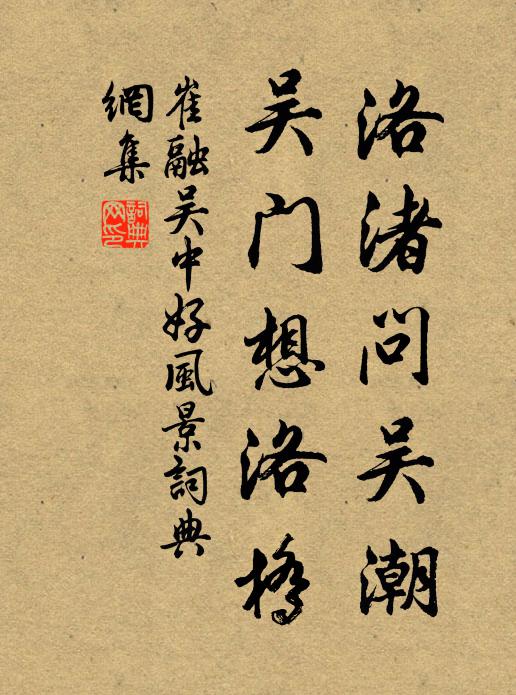 洛渚问吴潮
吴门想洛桥
崔融吴中好風景詞典
網集
詞典
网印